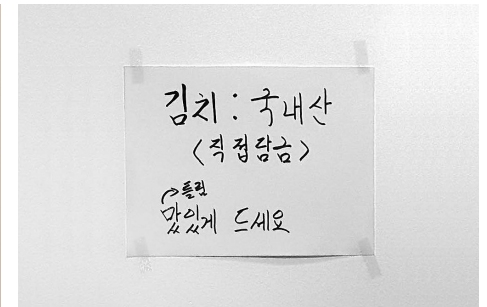 김치 : 국내산
<직접담금>
틀림
맛있게 드세요